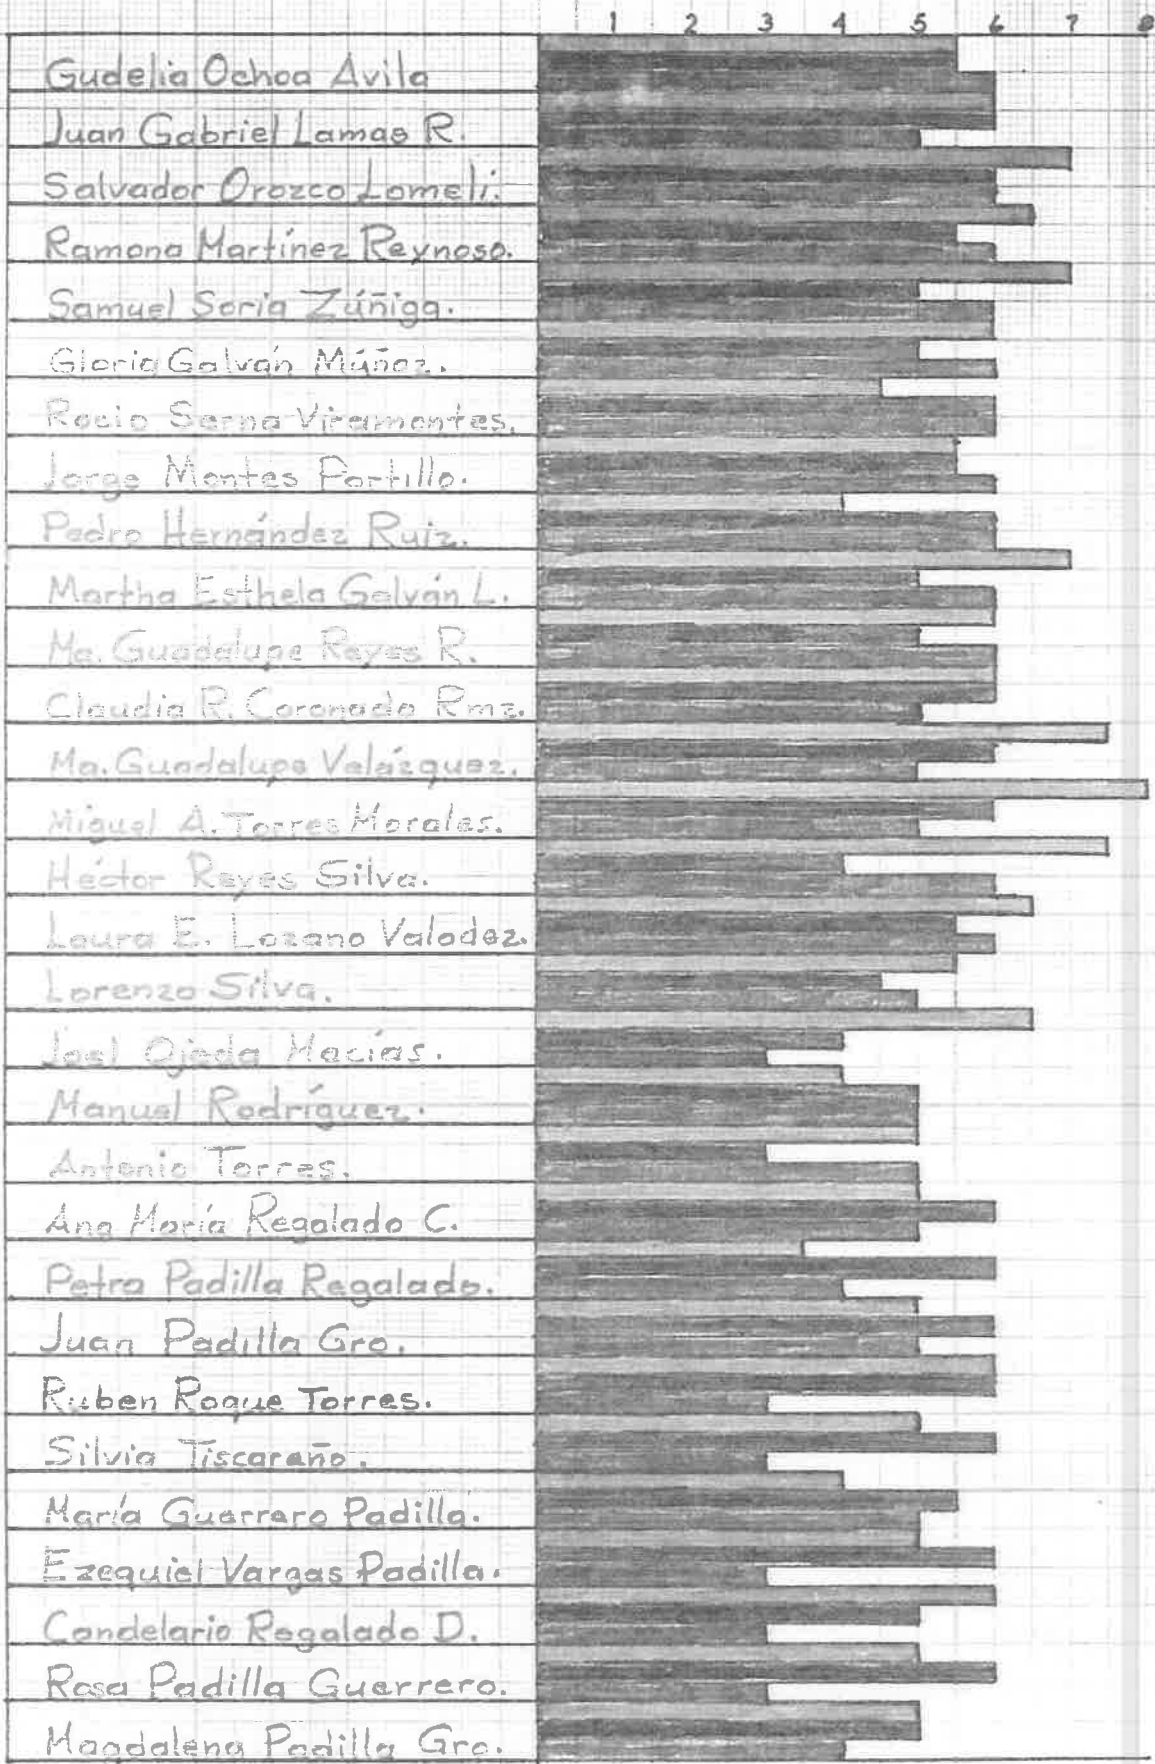 1 2 3 4 5 6 7 8
Gudelia Ochoa Avila
Juan Gabriel Lamas R.
Salvador Orozco Lomelí.
Ramona Martínez Reynoso.
Samuel Soria Zúñiga.
Gloria Galván Múñoz.
Rocio Serna Viramontes.
Jorge Montes Portillo.
Pedro Hernández Ruiz.
Martha Esthela Galván L.
Ma. Guadalupe Reyes R.
Claudia R. Coronado Rmz.
Ma. Guadalupe Velázquez.
Miguel A. Torres Morales.
Héctor Reyes Silva.
Laura E. Lozano Valadez.
Lorenzo Silva.
Joel Ojeda Macías.
Manuel Rodríguez.
Antonio Torres.
Ana María Regalado C.
Petra Padilla Regalado.
Juan Padilla Gro.
Ruben Roque Torres.
Silvia Tiscaraño.
María Guerrero Padilla.
Ezequiel Vargas Padilla.
Candelario Regalado D.
Rosa Padilla Guerrero.
Magdalena Padilla Gro.